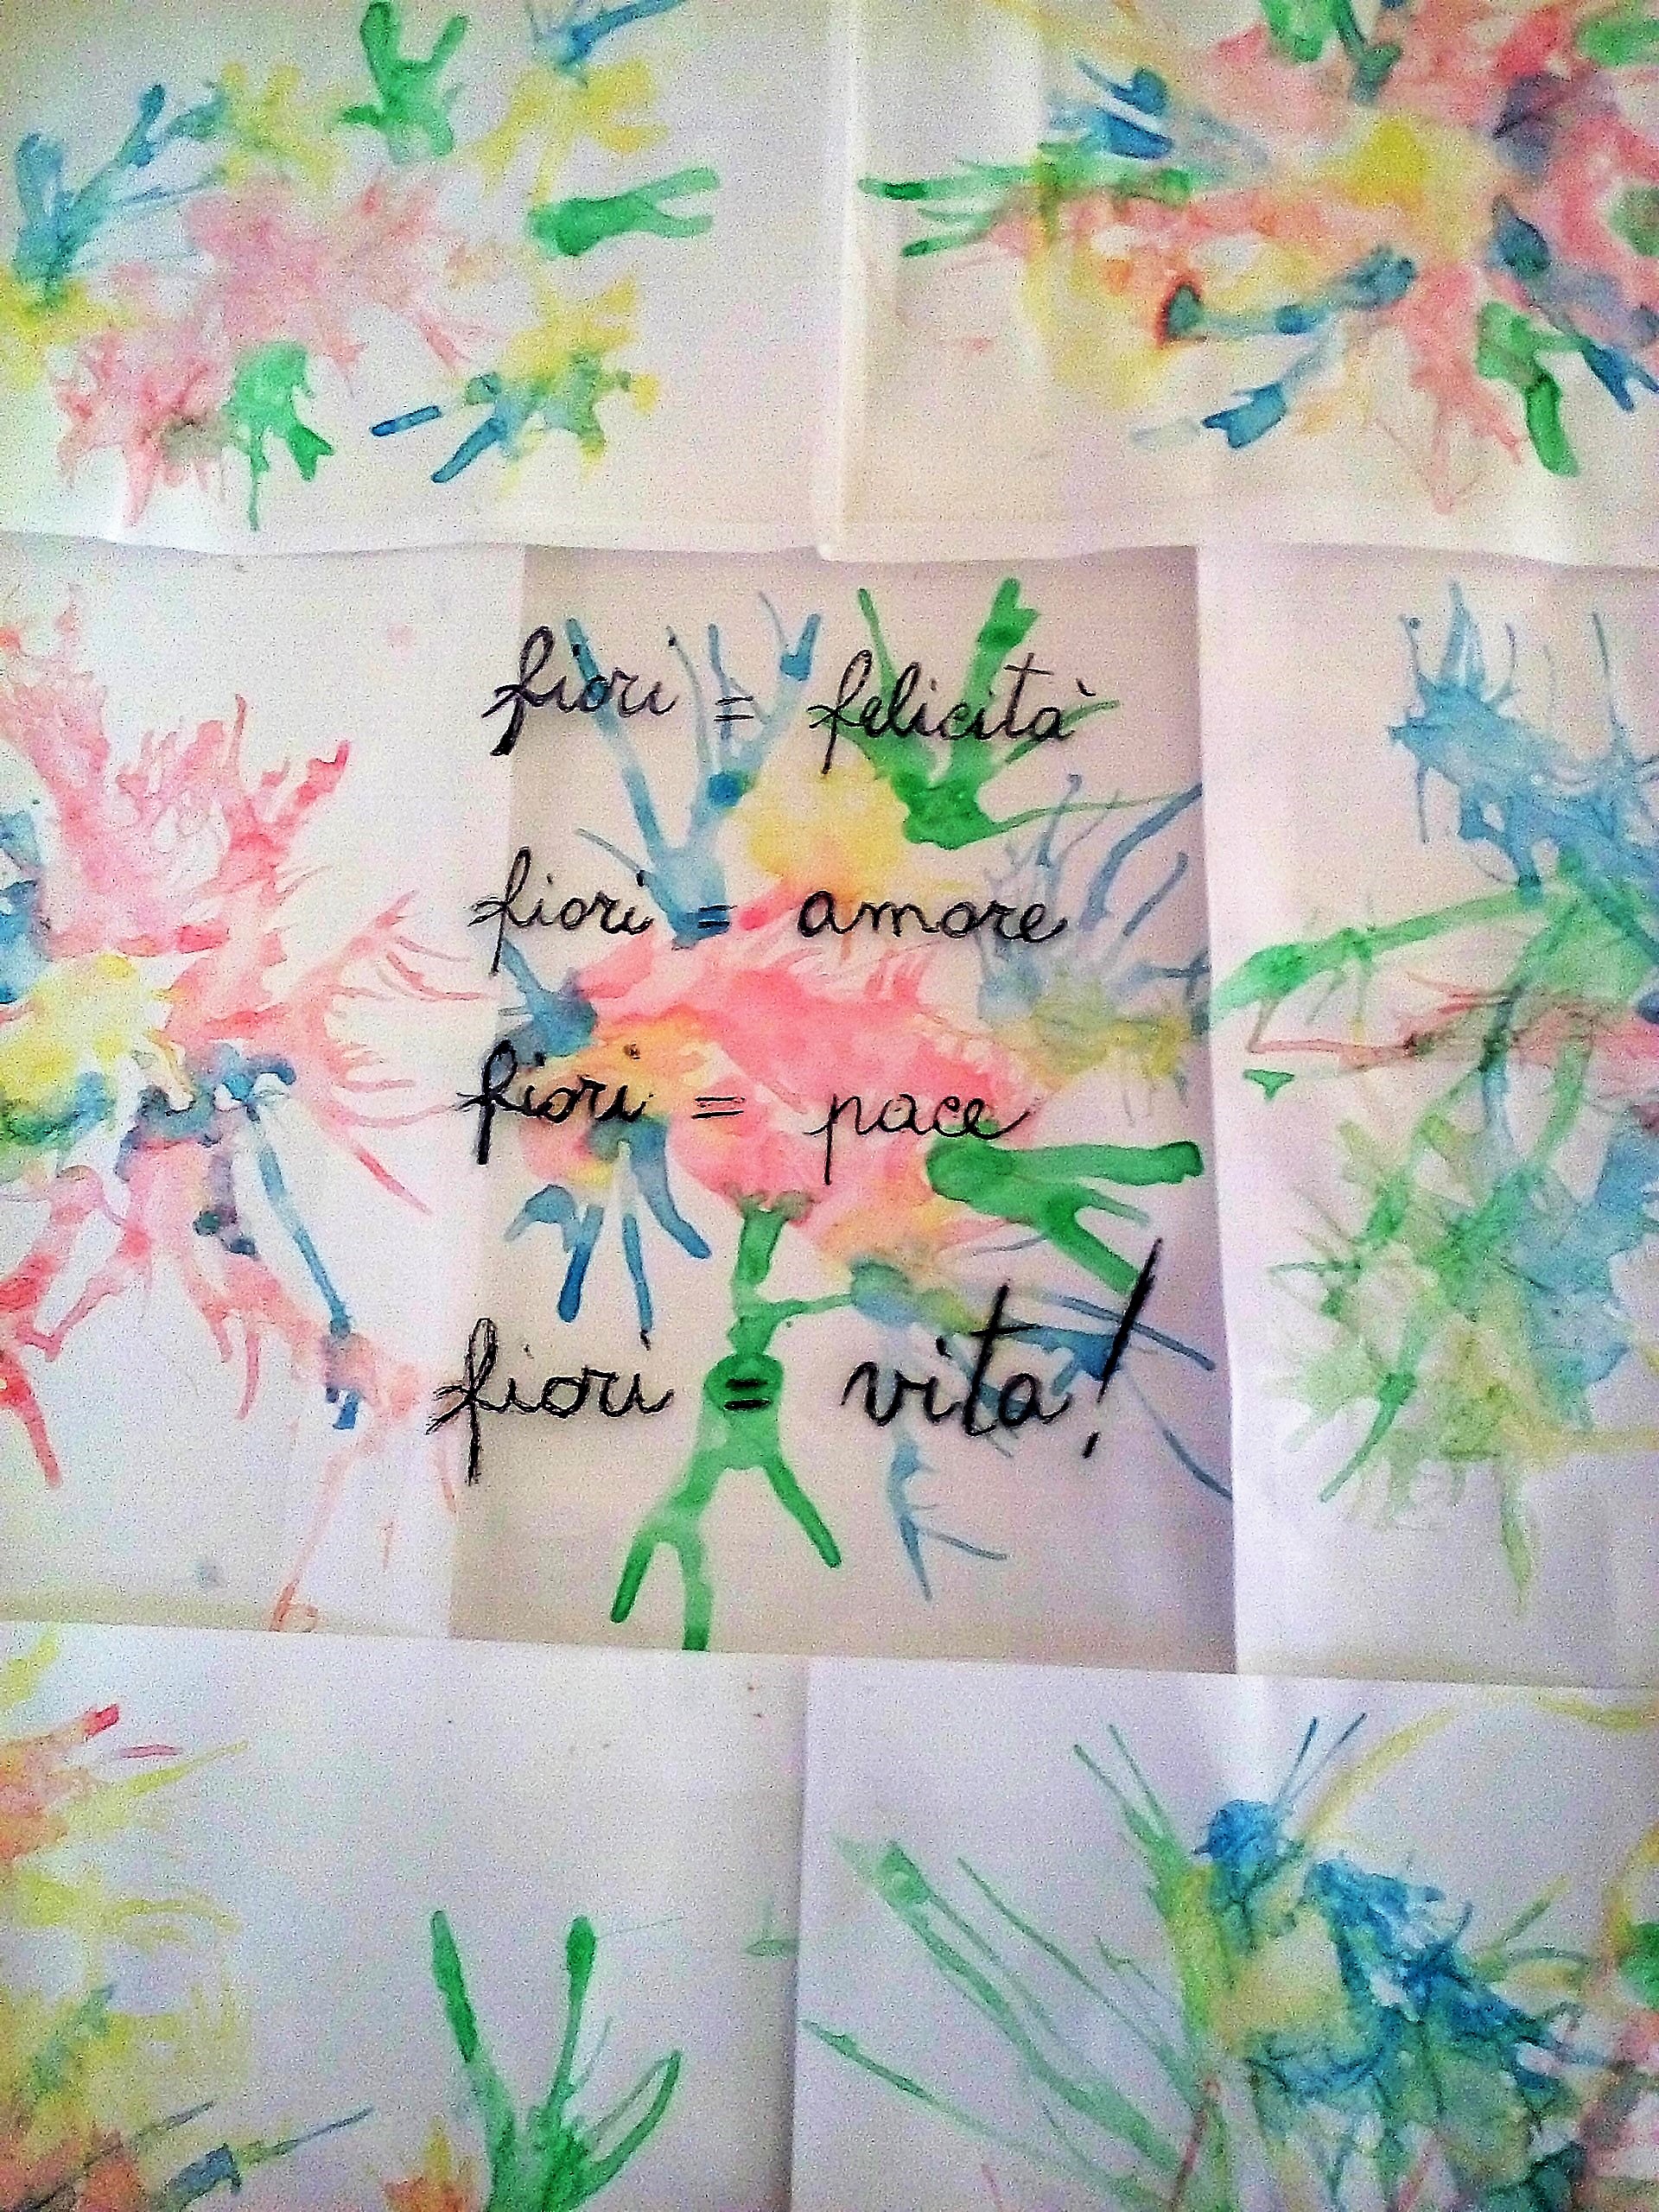 fiori = felicità
fiori = amore
fiori = pace
fiori = vita!